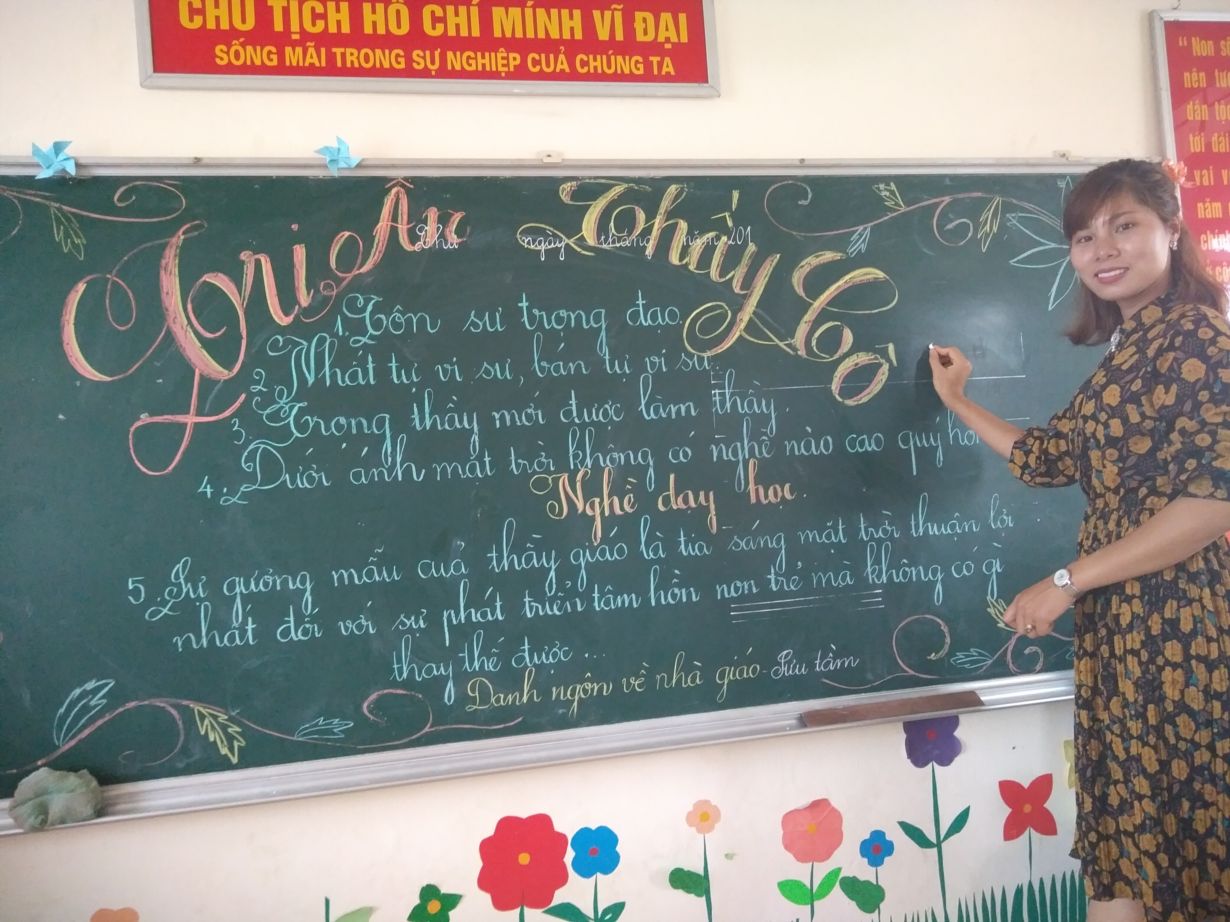 CHỦ TỊCH HỒ CHÍ MINH VĨ ĐẠI
SỐNG MÃI TRONG SỰ NGHIỆP CUẢ CHÚNG TA
Tri Ân Thầy Cô
Thứ ngày tháng năm 201
1. Tôn sư trọng đạo.
2. Nhất tự vi sư, bán tự vi sư.
3. Trong thầy mới được làm thầy.
4. Dưới ánh mặt trời không có nghề nào cao quý hơn
Nghề dạy học.
5. Sự gương mẫu cuả thầy giáo là tia sáng mặt trời thuận lợi
nhất đối với sự phát triển tâm hồn non trẻ mà không có gì
thay thế được ...
Danh ngôn về nhà giáo - Sưu tầm
"Non
nên
dân tộc
tới đài
vai
năm